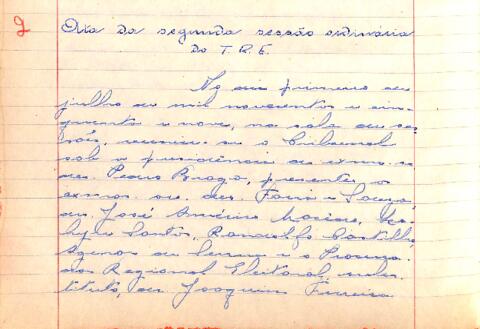 2
Ata da segunda sessão ordinária
do T. R. E.
No dia primeiro de
julho de mil novecentos e cin-
quenta e nove, na sala de ses-
sões, reuniu-se o Tribunal
sob a presidência do exmo. sr.
des. Pedro Braga, presentes os
exmos. srs. des. Faria e Souza,
drs. José Américo Macêdo,
Santos, Randolfo Castilho,
Agenor de Senna e o Procura-
dor Regional Eleitoral, subs-
tituto, dr. Joaquim Ferreira